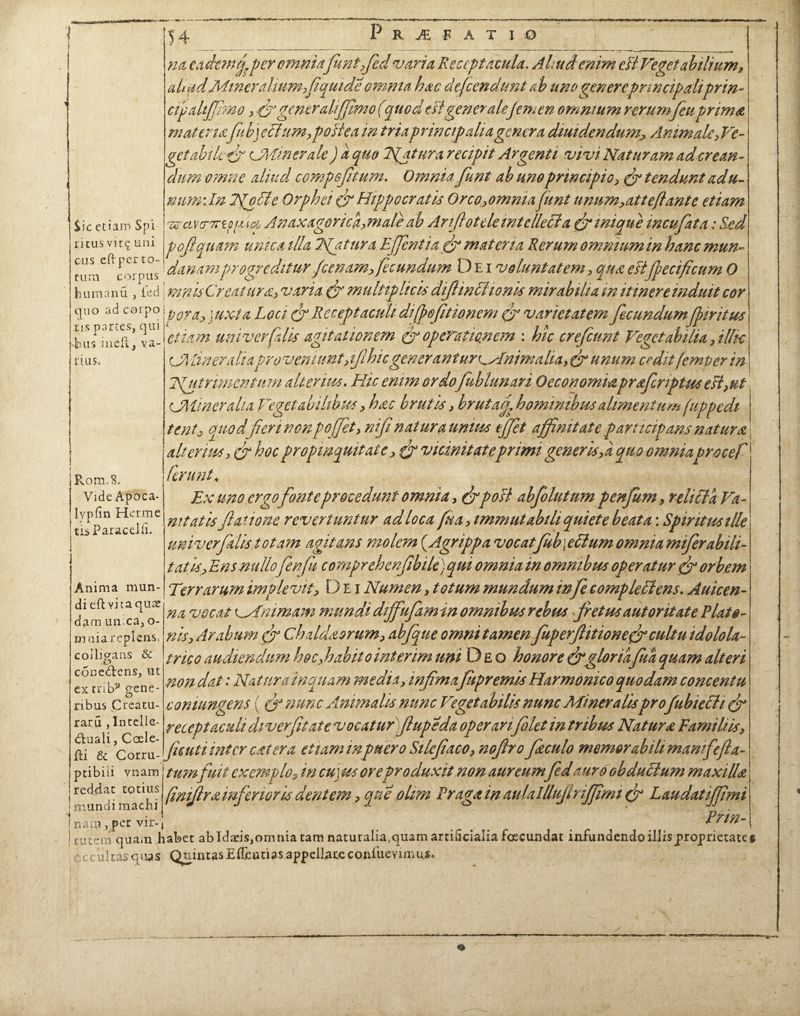 54 PRÆFATIO
na eademq́, per omnia sunt, sed varia Receptacula. Aliud enim est Vegetabilium,
aliud Mineralium, siquidē omnia hæc descendunt ab uno genere principali prin-
cipalissimo, & generalissimo (quod est generale semen omnium rerum seu primæ
materiæ subjectum, postea in tria principalia genera diuidendum, Animale, Ve-
getabile & Minerale) à quo Natura recipit Argenti vivi Naturam ad crean-
dum omne aliud compositum. Omnia sunt ab uno principio, & tendunt ad u-
num: In Nocte Orphei & Hippocratis Orco, omnia sunt unum, attestante etiam
Anaxagoricâ, malè ab Aristotele intellecta & iniquè incusata: Sed
postquam unica illa Natura Essentia & materia Rerum omnium in hanc mun-
danam progreditur scenam, secundum DEI voluntatem, quæ est specificum O
mnis Creaturæ, varia & multiplicis distinctionis mirabilia in itinere induit cor
pora, juxta Loci & Receptaculi dispositionem & varietatem secundum spiritus
etiam universalis agitationem & operationem: hîc crescunt Vegetabilia, illîc
Mineralia proveniunt, isthic generantur Animalia, & unum cedit semper in
Nutrimentum alterius. Hic enim ordo sublunari Oeconomiæ præscriptus est, ut
Mineralia Vegetabilibus, hæc brutis, brutaq́, hominibus alimentum suppedi
tent, quod fieri non posset, nisi natura unius esset affinitate participans naturæ
alterius, & hoc propinquitate, & vicinitate primi generis, à quo omnia proces
serunt.
Ex uno ergo fonte procedunt omnia, & post absolutum pensum, relictâ Va-
nitatis statione revertuntur ad loca sua, immutabili quiete beata: Spiritus ille
universalis totam agitans molem (Agrippa vocat subjectum omnia miserabili-
tatis, Ens nullo sensu comprehensibile) qui omnia in omnibus operatur & orbem
Terrarum implevit, DEI Numen, totum mundum in se complectens. Auicen-
na vocat Animam mundi diffusam in omnibus rebus fretus autoritate Plato-
nis, Arabum & Chaldæorum, absque omni tamen superstitione & cultu idolola-
trico audiendum hoc, habito interim uni DEO honore & gloriâ suâ quam alteri
non dat: Natura inquam media, infima supremis Harmonico quodam concentu
coniungens (& nunc Animalis nunc Vegetabilis nunc Mineralis pro subiecti &
receptaculi diversitate vocatur) stupēda operari solet in tribus Naturæ Familiis,
sicuti inter cætera etiam in puero Silesiaco, nostro sæculo memorabili manifesta-
tum fuit exemplo, in cujus ore produxit non aureum sed auro obductum maxillæ
sinistræ inferioris dentem, quē olim Pragæ in aula Illustrissimi & Laudatissimi
Prin-
Sic etiam Spi
ritus vitę uni
cus est per to-
tum corpus
humanū, sed
quo ad corpo
ris partes, qui
bus inest, va-
rius.
Rom. 8.
Vide Apoca-
lypsin Herme
tis Paracelsi.
Anima mun-
di est vita quæ
dam unica, o-
mnia replens,
colligans &
cōnectens, ut
ex trib⁹ gene-
ribus Creatu-
rarū, Intelle-
ctuali, Cœle-
sti & Corru-
ptibili vnam
reddat totius
mundi machi
nam, per vir-
tutem quam habet ab Idæis, omnia tam naturalia, quam artificialia fœcundat infundendo illis proprietates
occultas quas Quintas Essentias appellare consuevimus.